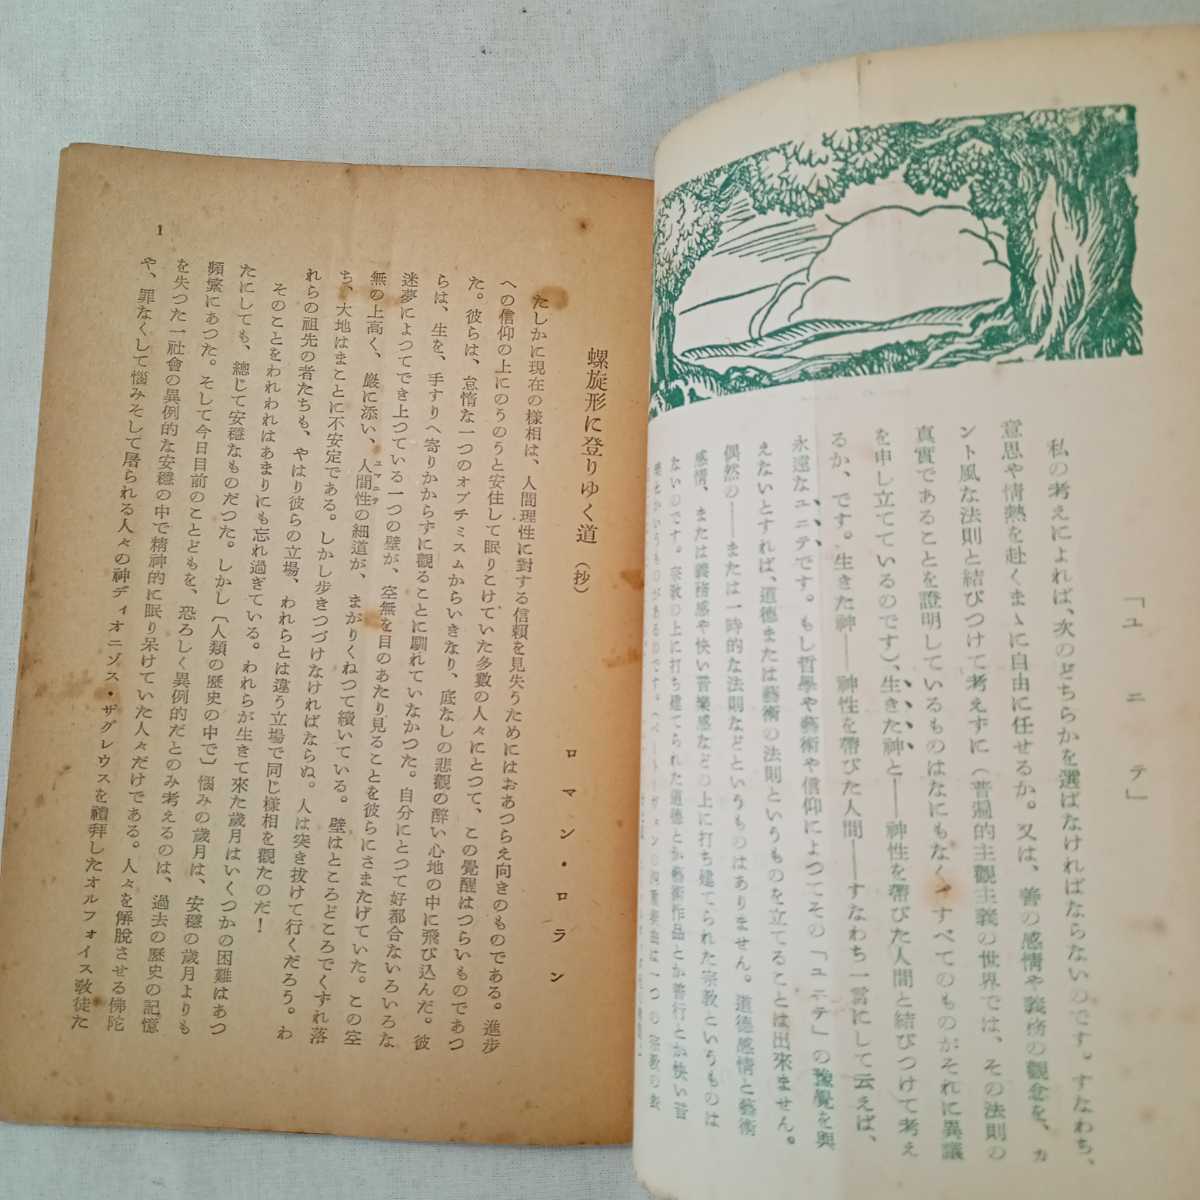 「ユニテ」
私の考えによれば、次のどちらかを選ばなければならないのです。すなわち、
意思や情熱を赴くまゝに自由に任せるか。又は、善の感情や義務の觀念を、カ
ント風な法則と結びつけて考えずに（普遍的主觀主義の世界では、その法則の
真實であることを證明しているものはなにもなく、すべてのものがそれに異議
を申し立てているのです）、生きた神と――神性を帶びた人間と結びつけて考え
るか、です。生きた神――神性を帶びた人間――すなわち一言にして云えば、
永遠なユニテです。もし哲學や藝術や信仰によつてその「ユニテ」の豫覺を與
えないとすれば、道德または藝術の法則というものを立てることは出來ません。
偶然の――または一時的な法則などというものはありません。道德感情と藝術
感情、または義務感や快い音樂感などの上に打ち建てられた宗敎というものは
ないのです。宗敎の上に打ち建てられた道德とか藝術作品とか善行とか快い音
螺旋形に登りゆく道（抄）
ロマン・ロラン
たしかに現在の樣相は、人間理性に對する信賴を見失うためにはおあつらえ向きのものである。進步
への信仰の上にのうのうと安住して眠りこけていた多數の人々にとつて、この覺醒はつらいものであつ
た。彼らは、怠惰な一つのオプチミスムからいきなり、底なしの悲觀の醉い心地の中に飛び込んだ。彼
らは、生を、手すりへ寄りかからずに觀ることに馴れていなかつた。自分にとつて好都合ないろいろな
迷夢によつてでき上つている一つの壁が、空無を目のあたり見ることを彼らにさまたげていた。この空
無の上高く、巖に添い、人間性の細道が、まがりくねつて續いている。壁はところどころでくずれ落
ユマニテ
ち、大地はまことに不安定である。しかし步きつづけなければならぬ。人は突き拔けて行くだろう。わ
れらの祖先の者たちも、やはり彼らの立場、われらとは違う立場で同じ樣相を觀たのだ！
そのことをわれわれはあまりにも忘れ過ぎている。われらが生きて來た歲月はいくつかの困難はあつ
たにしても、總じて安穩なものだつた。しかし〔人類の歷史の中で〕惱みの歲月は、安穩の歲月よりも
頻繁にあつた。そして今日目前のことどもを、恐ろしく異例的だとのみ考えるのは、過去の歷史の記憶
を失つた一社會の異例的な安穩の中で精神的に眠り呆けていた人々だけである。人々を解脫させる佛陀
や、罪なくして惱みそして屠られる人々の神ディオニゾス・ザグレウスを禮拜したオルフォイス敎徒た
1